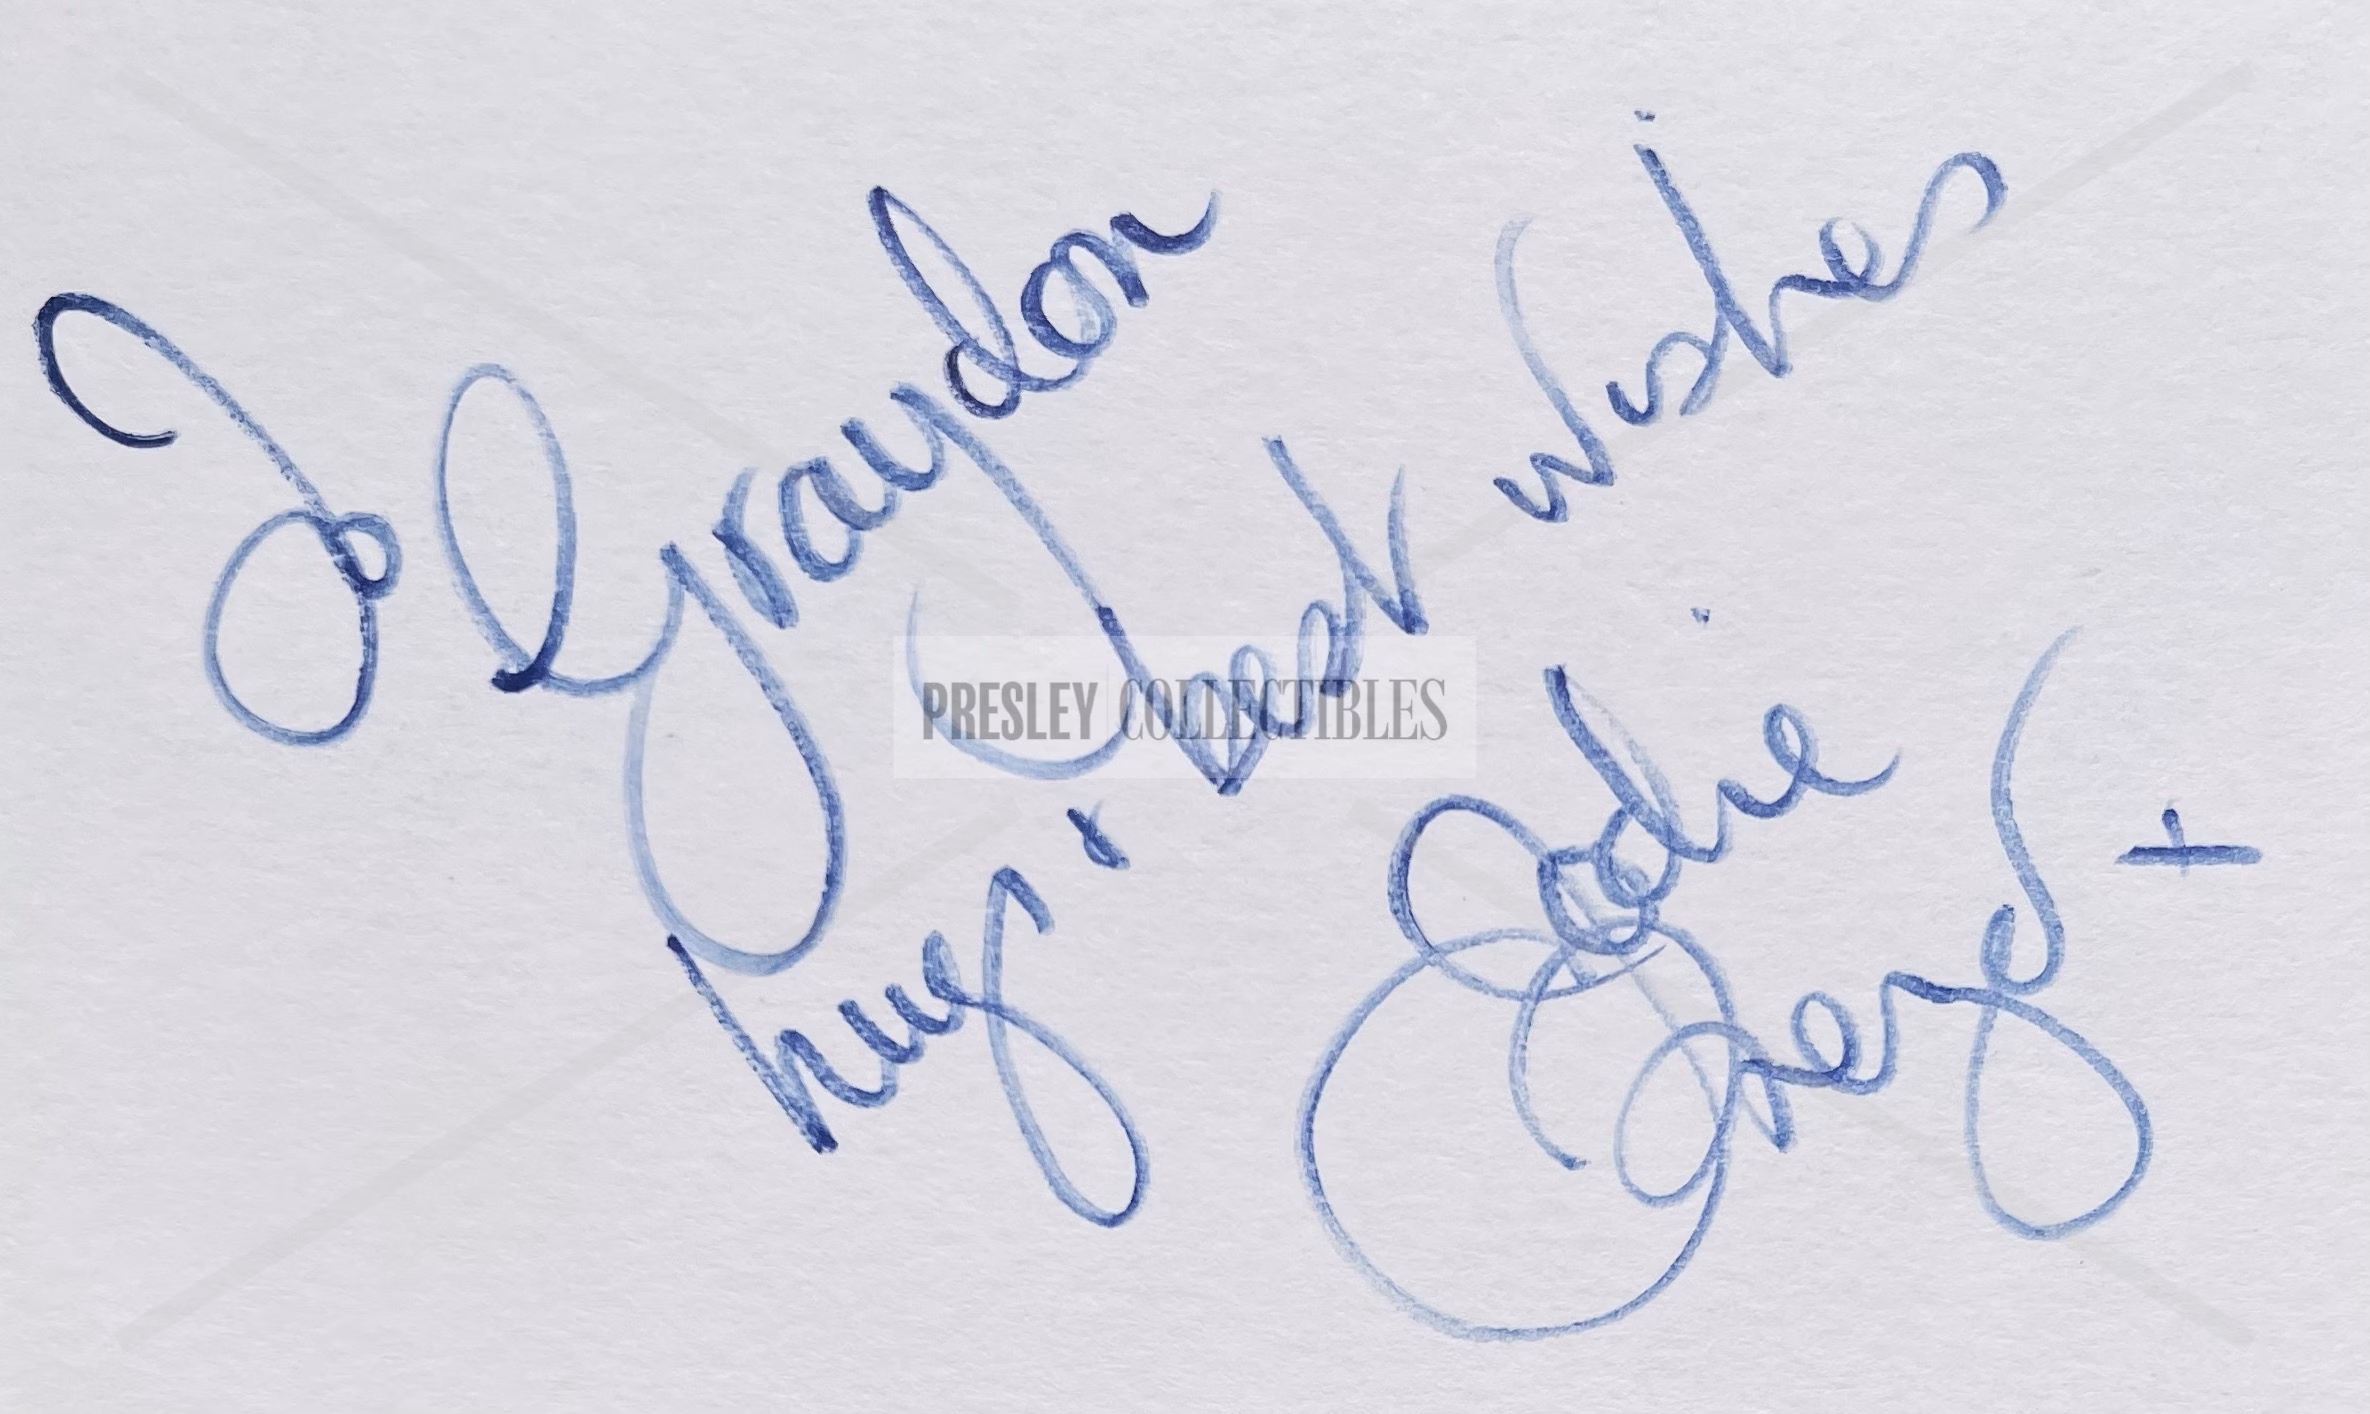 To Graydon
hugs & best wishes
Edie
+
PRESLEY COLLECTIBLES